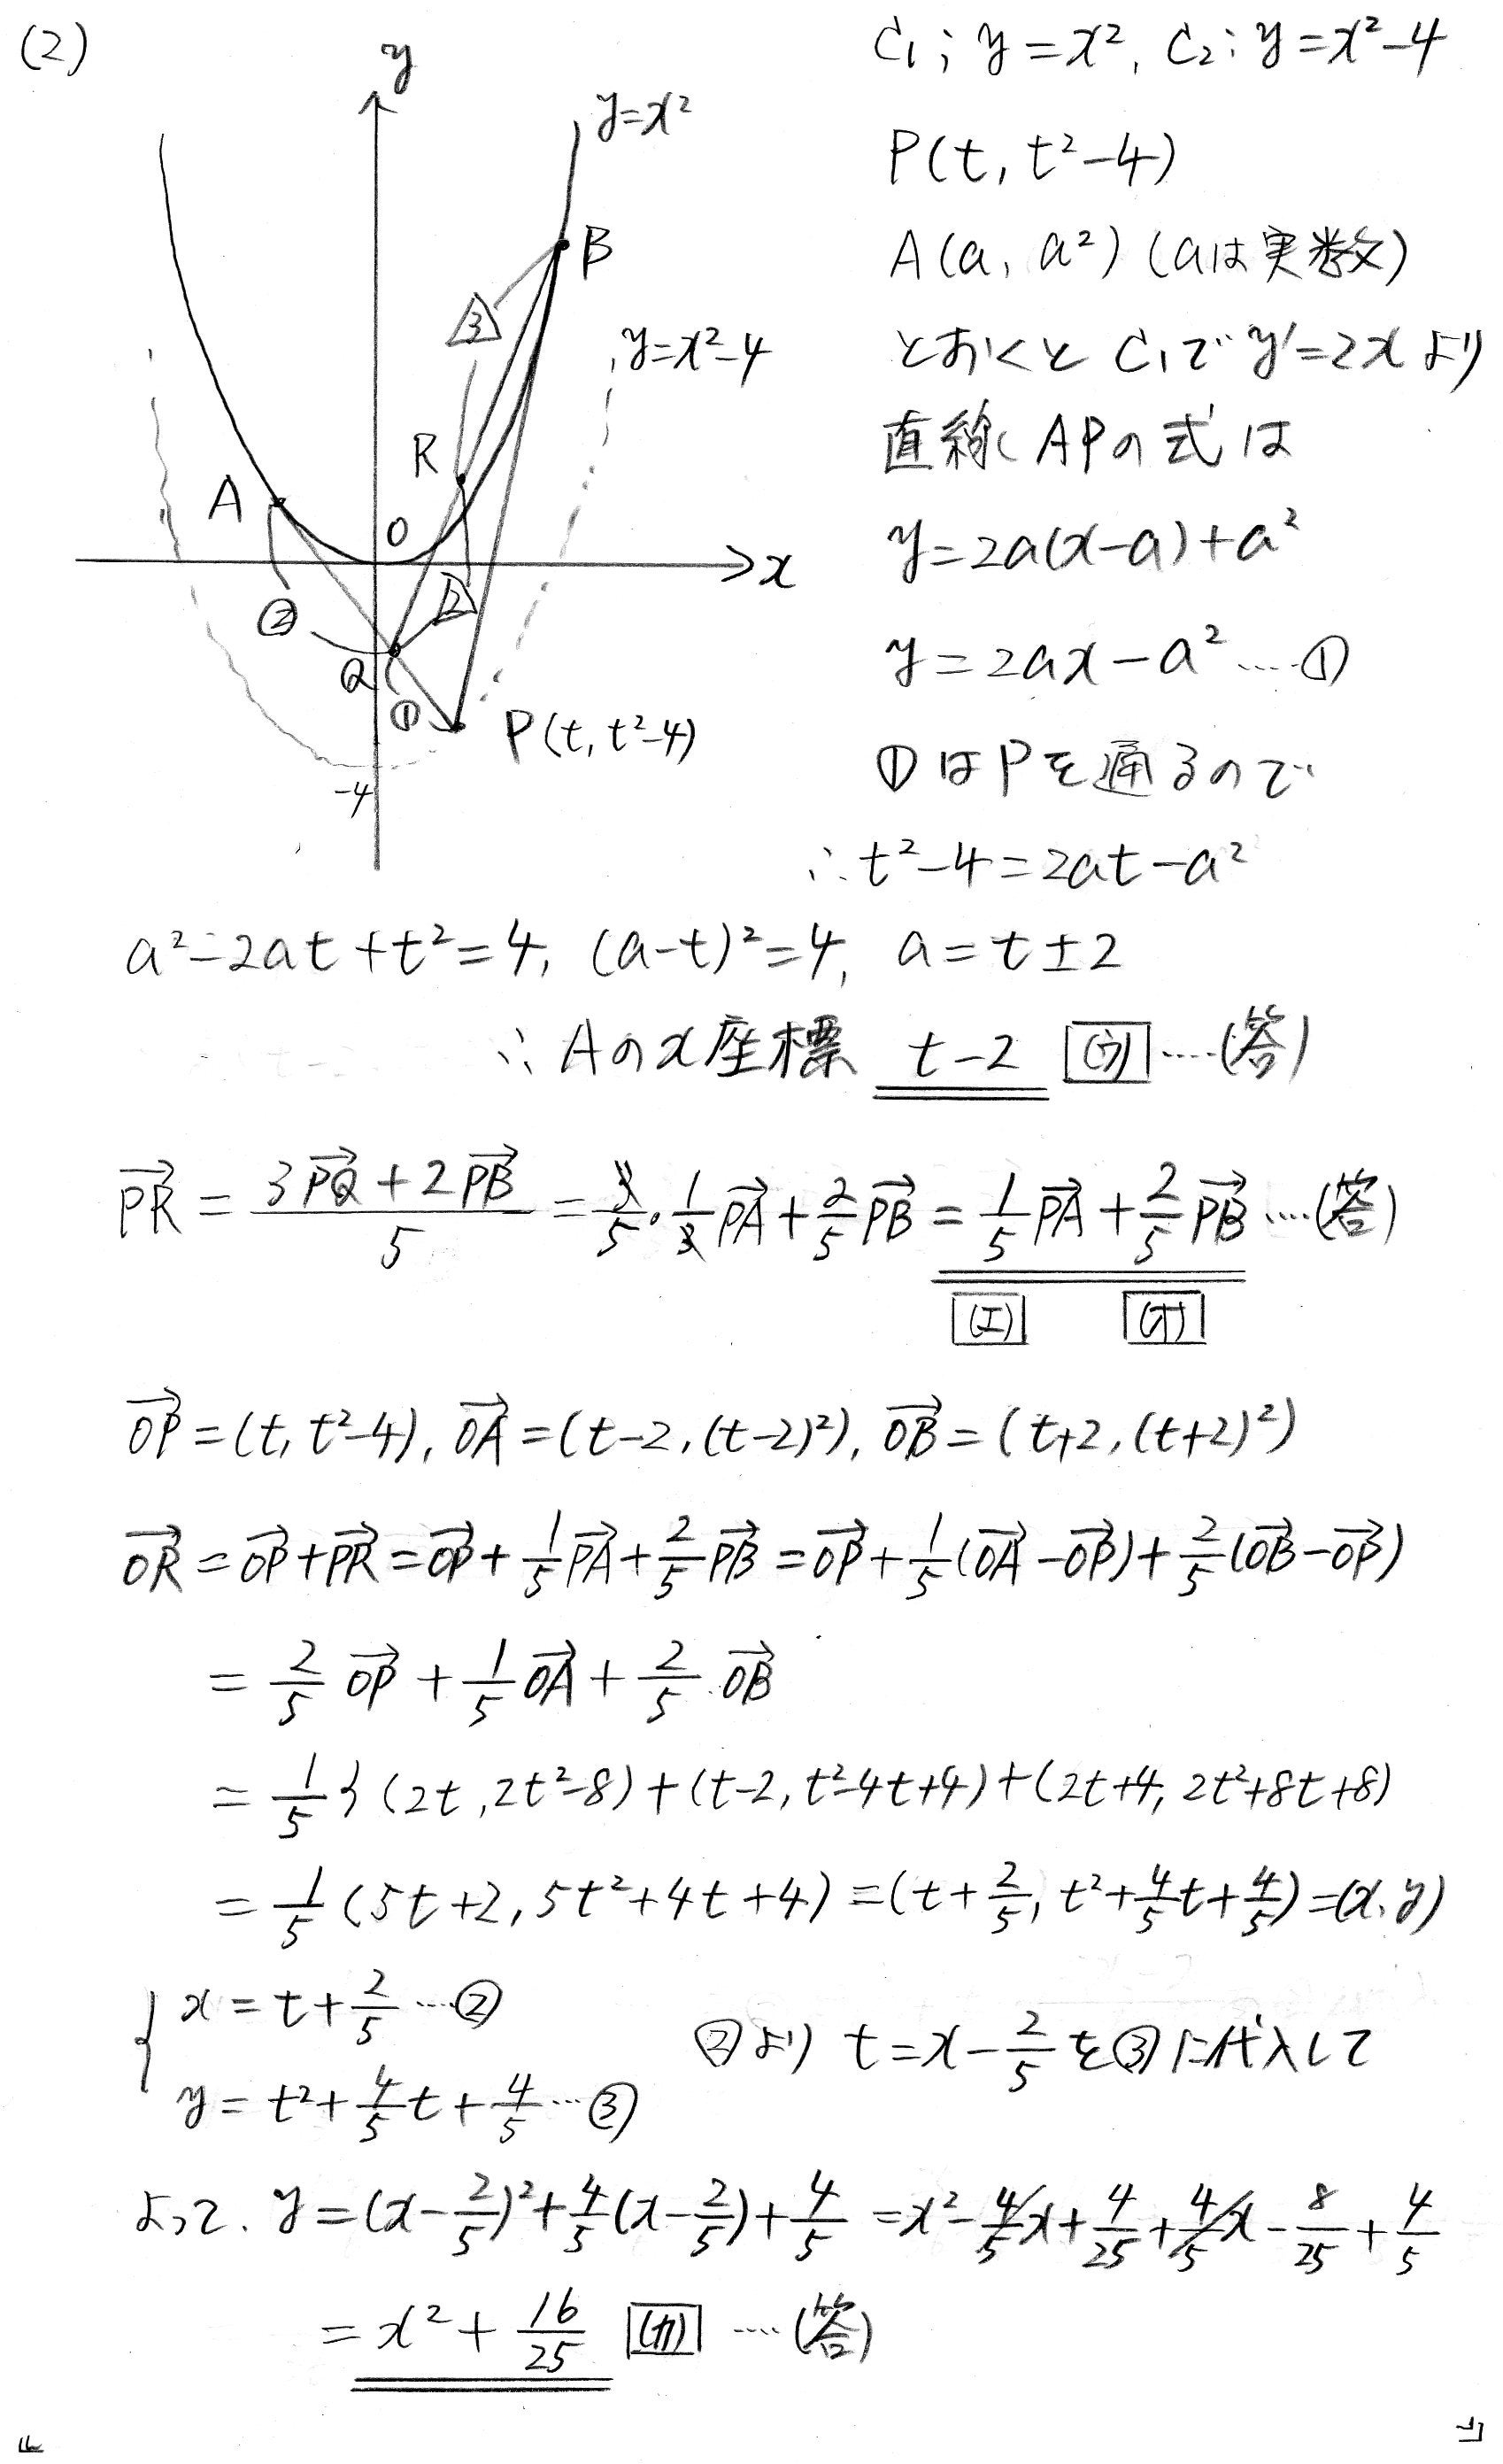 (2)
y
y=x²
B
△3
y=x²-4
R
A
O
x
②
△2
Q
①
P(t, t²-4)
-4
C₁; y=x², C₂: y=x²-4
P(t, t²-4)
A(a, a²) (aは実数)
とおくと C₁で y'=2x より
直線 APの式は
y=2a(x-a)+a²
y=2ax-a² ……①
①はPを通るので
∴ t²-4=2at-a²
a²-2at+t²=4, (a-t)²=4, a=t±2
∴ Aのx座標 t-2 (ウ) ……(答)
PR→ = (3PQ→+2PB→)/5 = 3/5・1/3 PA→ + 2/5 PB→ = 1/5 PA→ + 2/5 PB→ ……(答)
(エ) (オ)
OP→=(t, t²-4), OA→=(t-2, (t-2)²), OB→=(t+2, (t+2)²)
OR→=OP→+PR→=OP→+1/5 PA→+2/5 PB→=OP→+1/5(OA→-OP→)+2/5(OB→-OP→)
= 2/5 OP→ + 1/5 OA→ + 2/5 OB→
= 1/5 { (2t, 2t²-8)+(t-2, t²-4t+4)+(2t+4, 2t²+8t+8)
= 1/5 (5t+2, 5t²+4t+4) =(t+2/5, t²+4/5 t+4/5)=(x, y)
{ x=t+2/5 …②
y=t²+4/5 t+4/5 …③
②より t=x-2/5 を③に代入して
よって. y=(x-2/5)²+4/5(x-2/5)+4/5 =x²-4/5 x+4/25+4/5 x-8/25+4/5
= x²+16/25 (カ) ……(答)